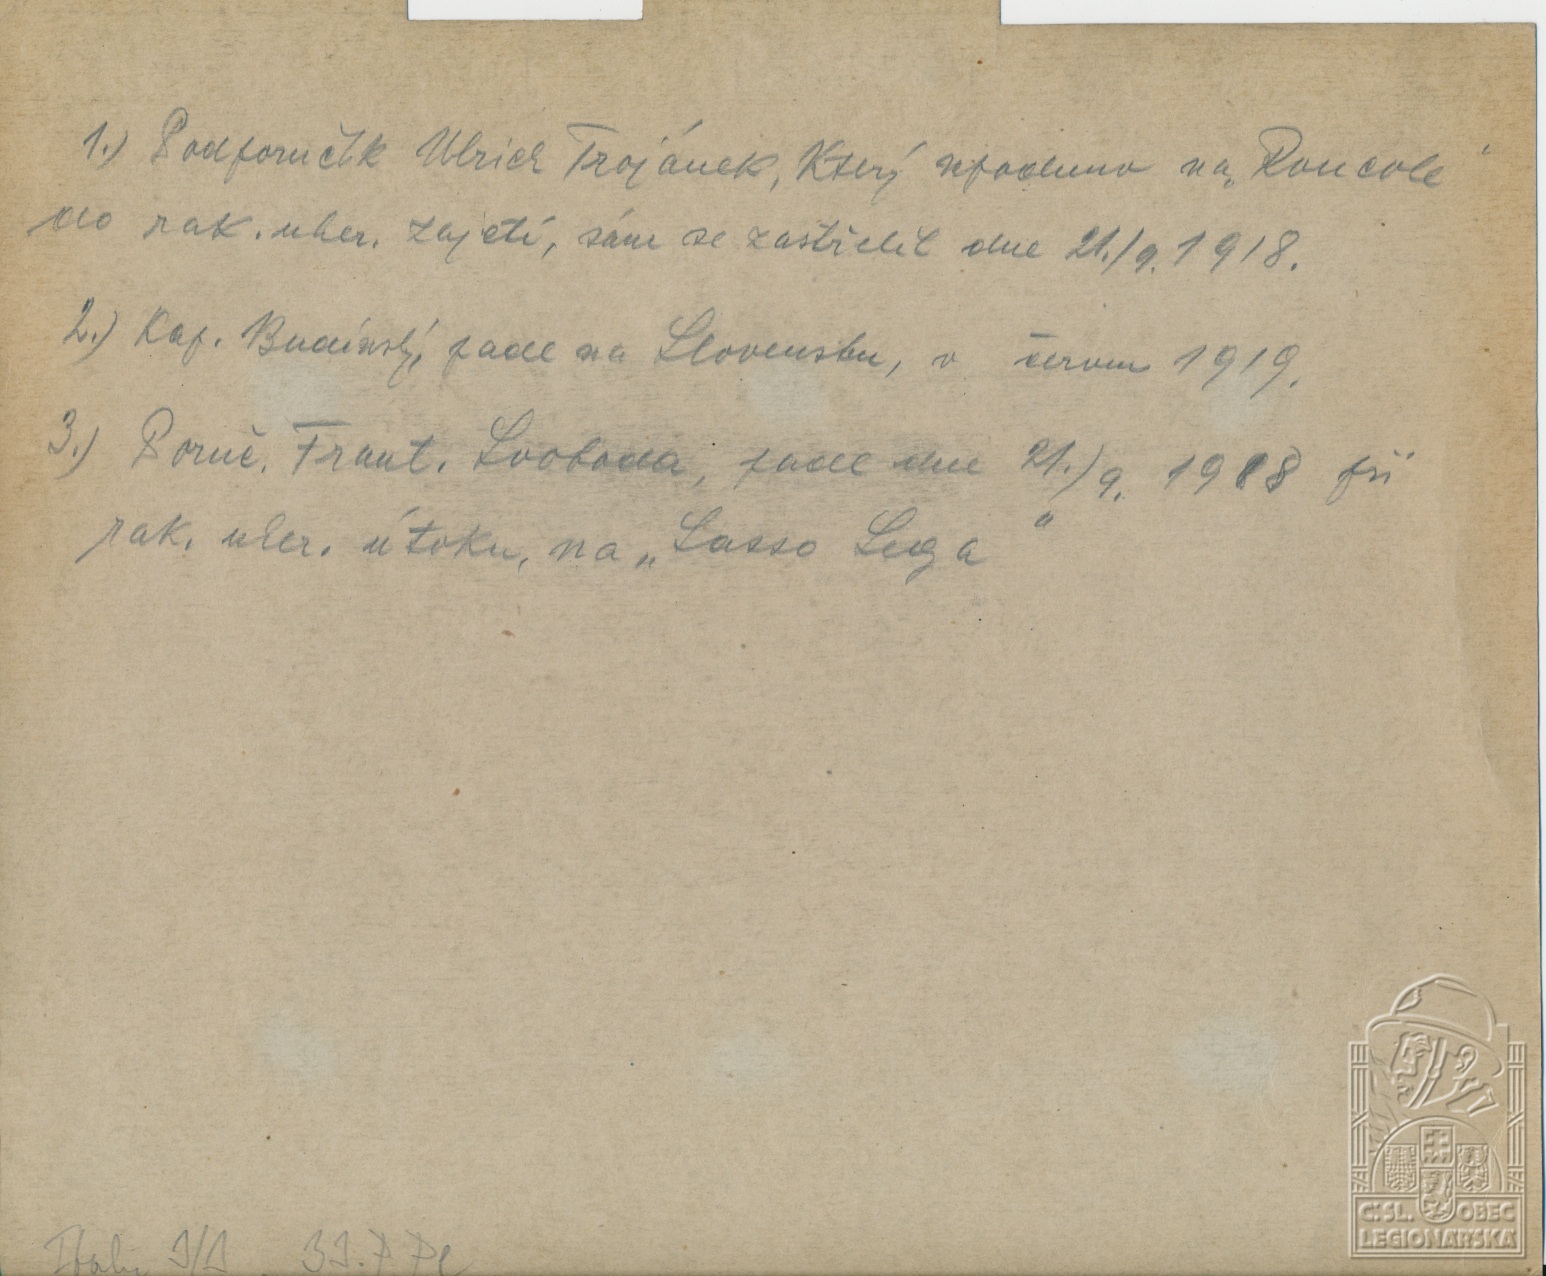 1.) Podporučík Ulrich Trojánek, Který upadnuv na „Roncole“
do rak. uher. zajetí, sám se zastřelil dne 21./9. 1918.
2.) Kap. Budínský, padl na Slovensku, v červnu 1919.
3.) Poruč. Frant. Svoboda, padl dne 21./9. 1918 při
rak. uher. útoku, na „Sasso Lega“
Č.SL. OBEC
LEGIONÁŘSKÁ